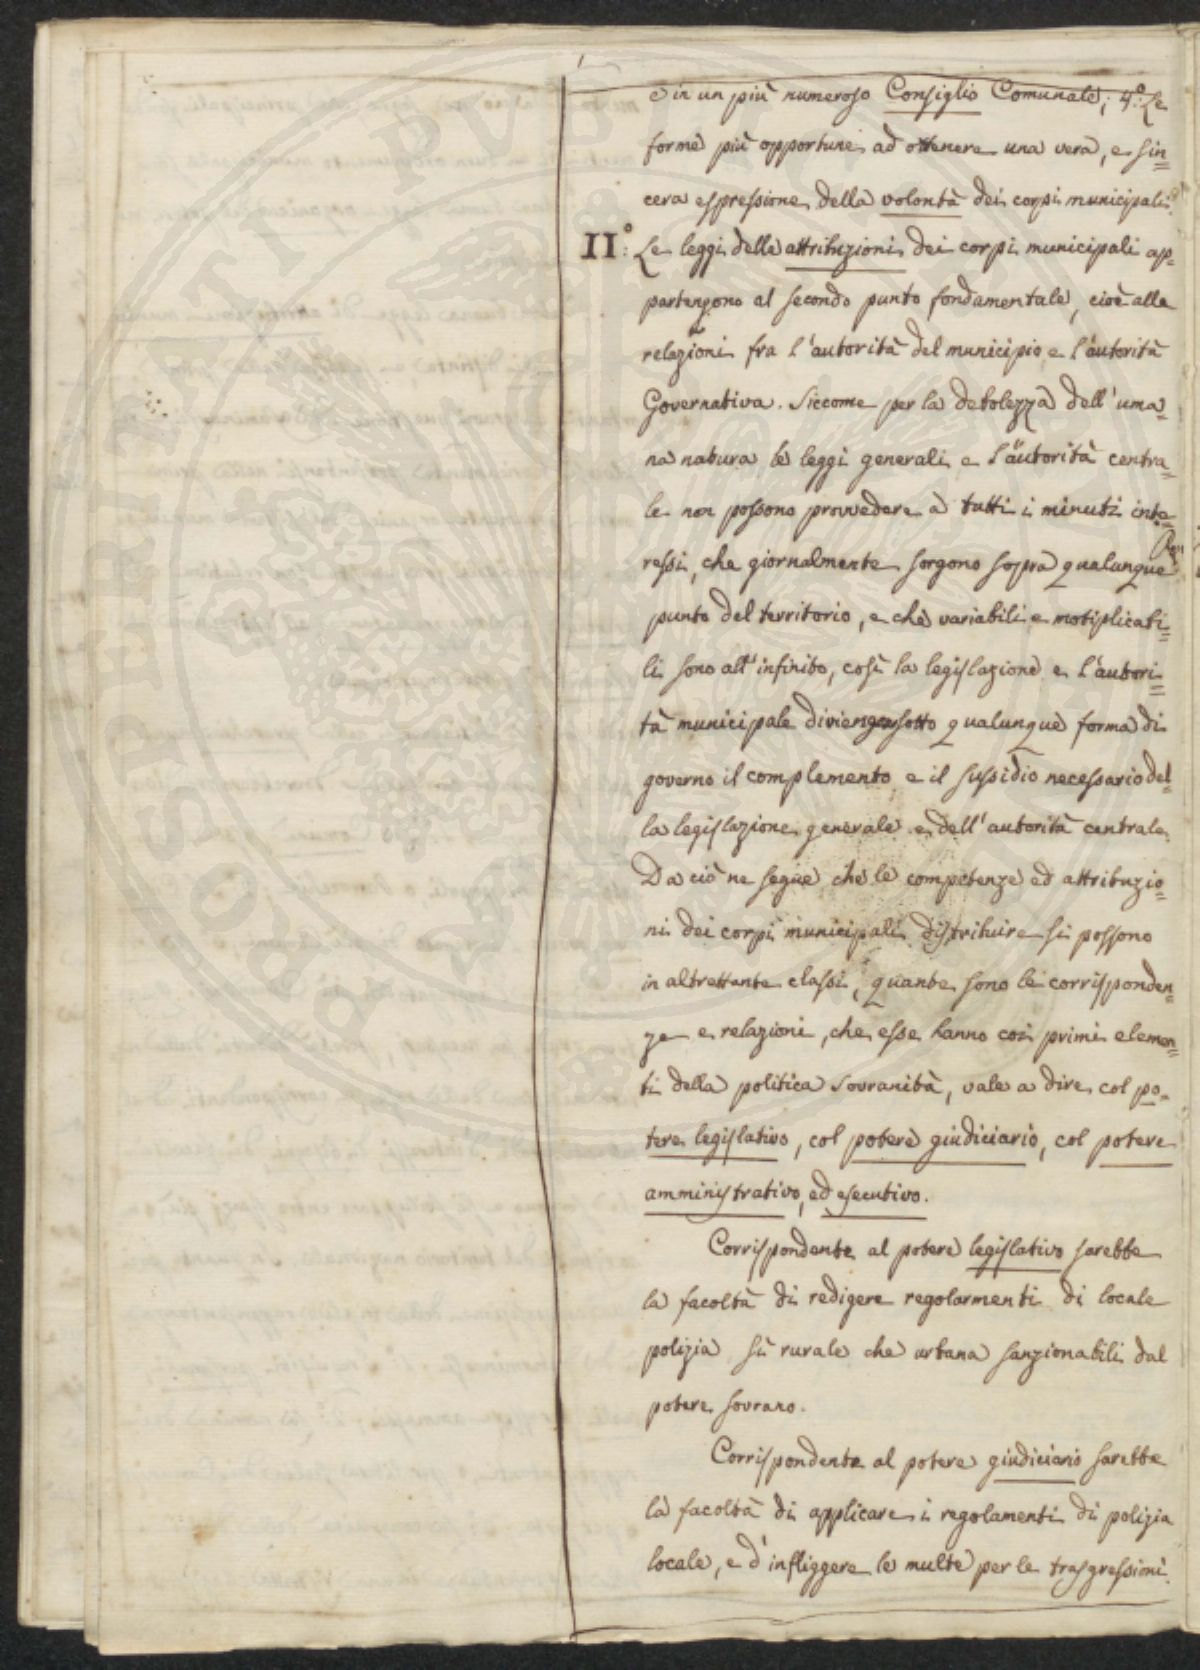 e in un più numeroso Consiglio Comunale; 4.° Le
forme più opportune ad ottenere una vera, e sin=
cera espressione della volontà dei corpi municipali.
II.° Le leggi delle attribuzioni dei corpi municipali ap=
partengono al secondo punto fondamentale, cioè alle
relazioni fra l'autorità del municipio e l'autorità
Governativa. Siccome per la debolezza dell'uma=
na natura le leggi generali e l'autorità centra=
le non possono provvedere a tutti i minuti inte=
ressi, che giornalmente sorgono sopra qualunque
punto del territorio, e che variabili e motiplicabi=
li sono all'infinito, così la legislazione e l'autori=
tà municipale divengon sotto qualunque forma di
governo il complemento e il sussidio necessario del=
la legislazione generale e dell'autorità centrale.
Da ciò ne segue che le competenze ed attribuzio=
ni dei corpi municipali distribuire si possono
in altrettante classi, quante sono le corrisponden=
ze e relazioni, che esse hanno coi primi elemen=
ti della politica sovranità, vale a dire col po=
tere legislativo, col potere giudiciario, col potere
amministrativo, ed esecutivo.
Corrispondente al potere legislativo sarebbe
la facoltà di redigere regolarmenti di locale
polizia sì rurale che urbana sanzionabili dal
potere sovrano.
Corrispondente al potere giudiciario sarebbe
la facoltà di applicare i regolamenti di polizia
locale, e d'infliggere le multe per le trasgressioni.
POSTERITATI
PUBLIC